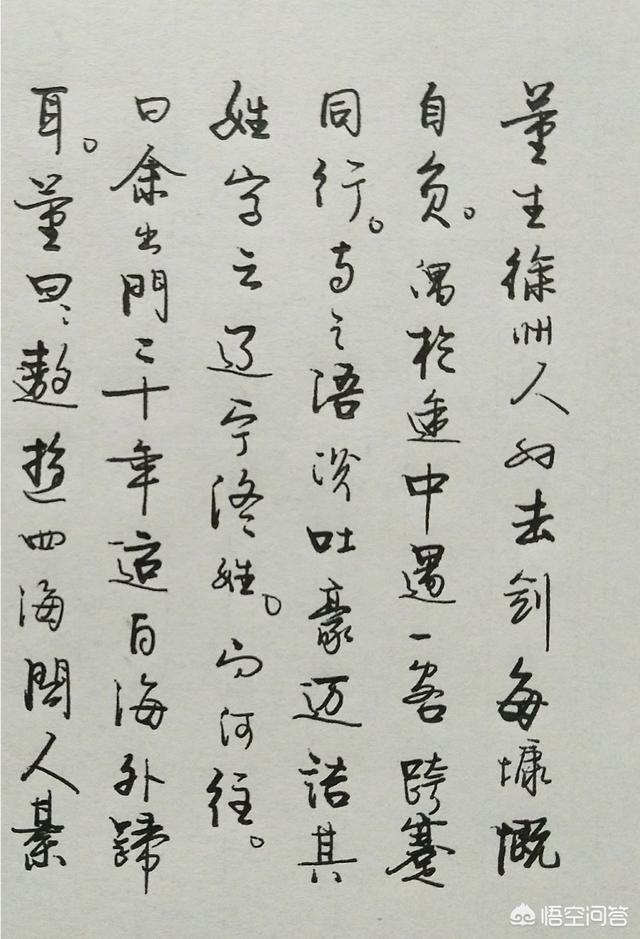 董生徐州人好击剑每慷慨
自负。偶於途中遇一客跨蹇
同行。与之语谈吐豪迈诘其
姓字云辽宁佟姓。问何往。
曰余出門二十年适自海外歸
耳。董曰遨遊四海閱人綦
悟空问答